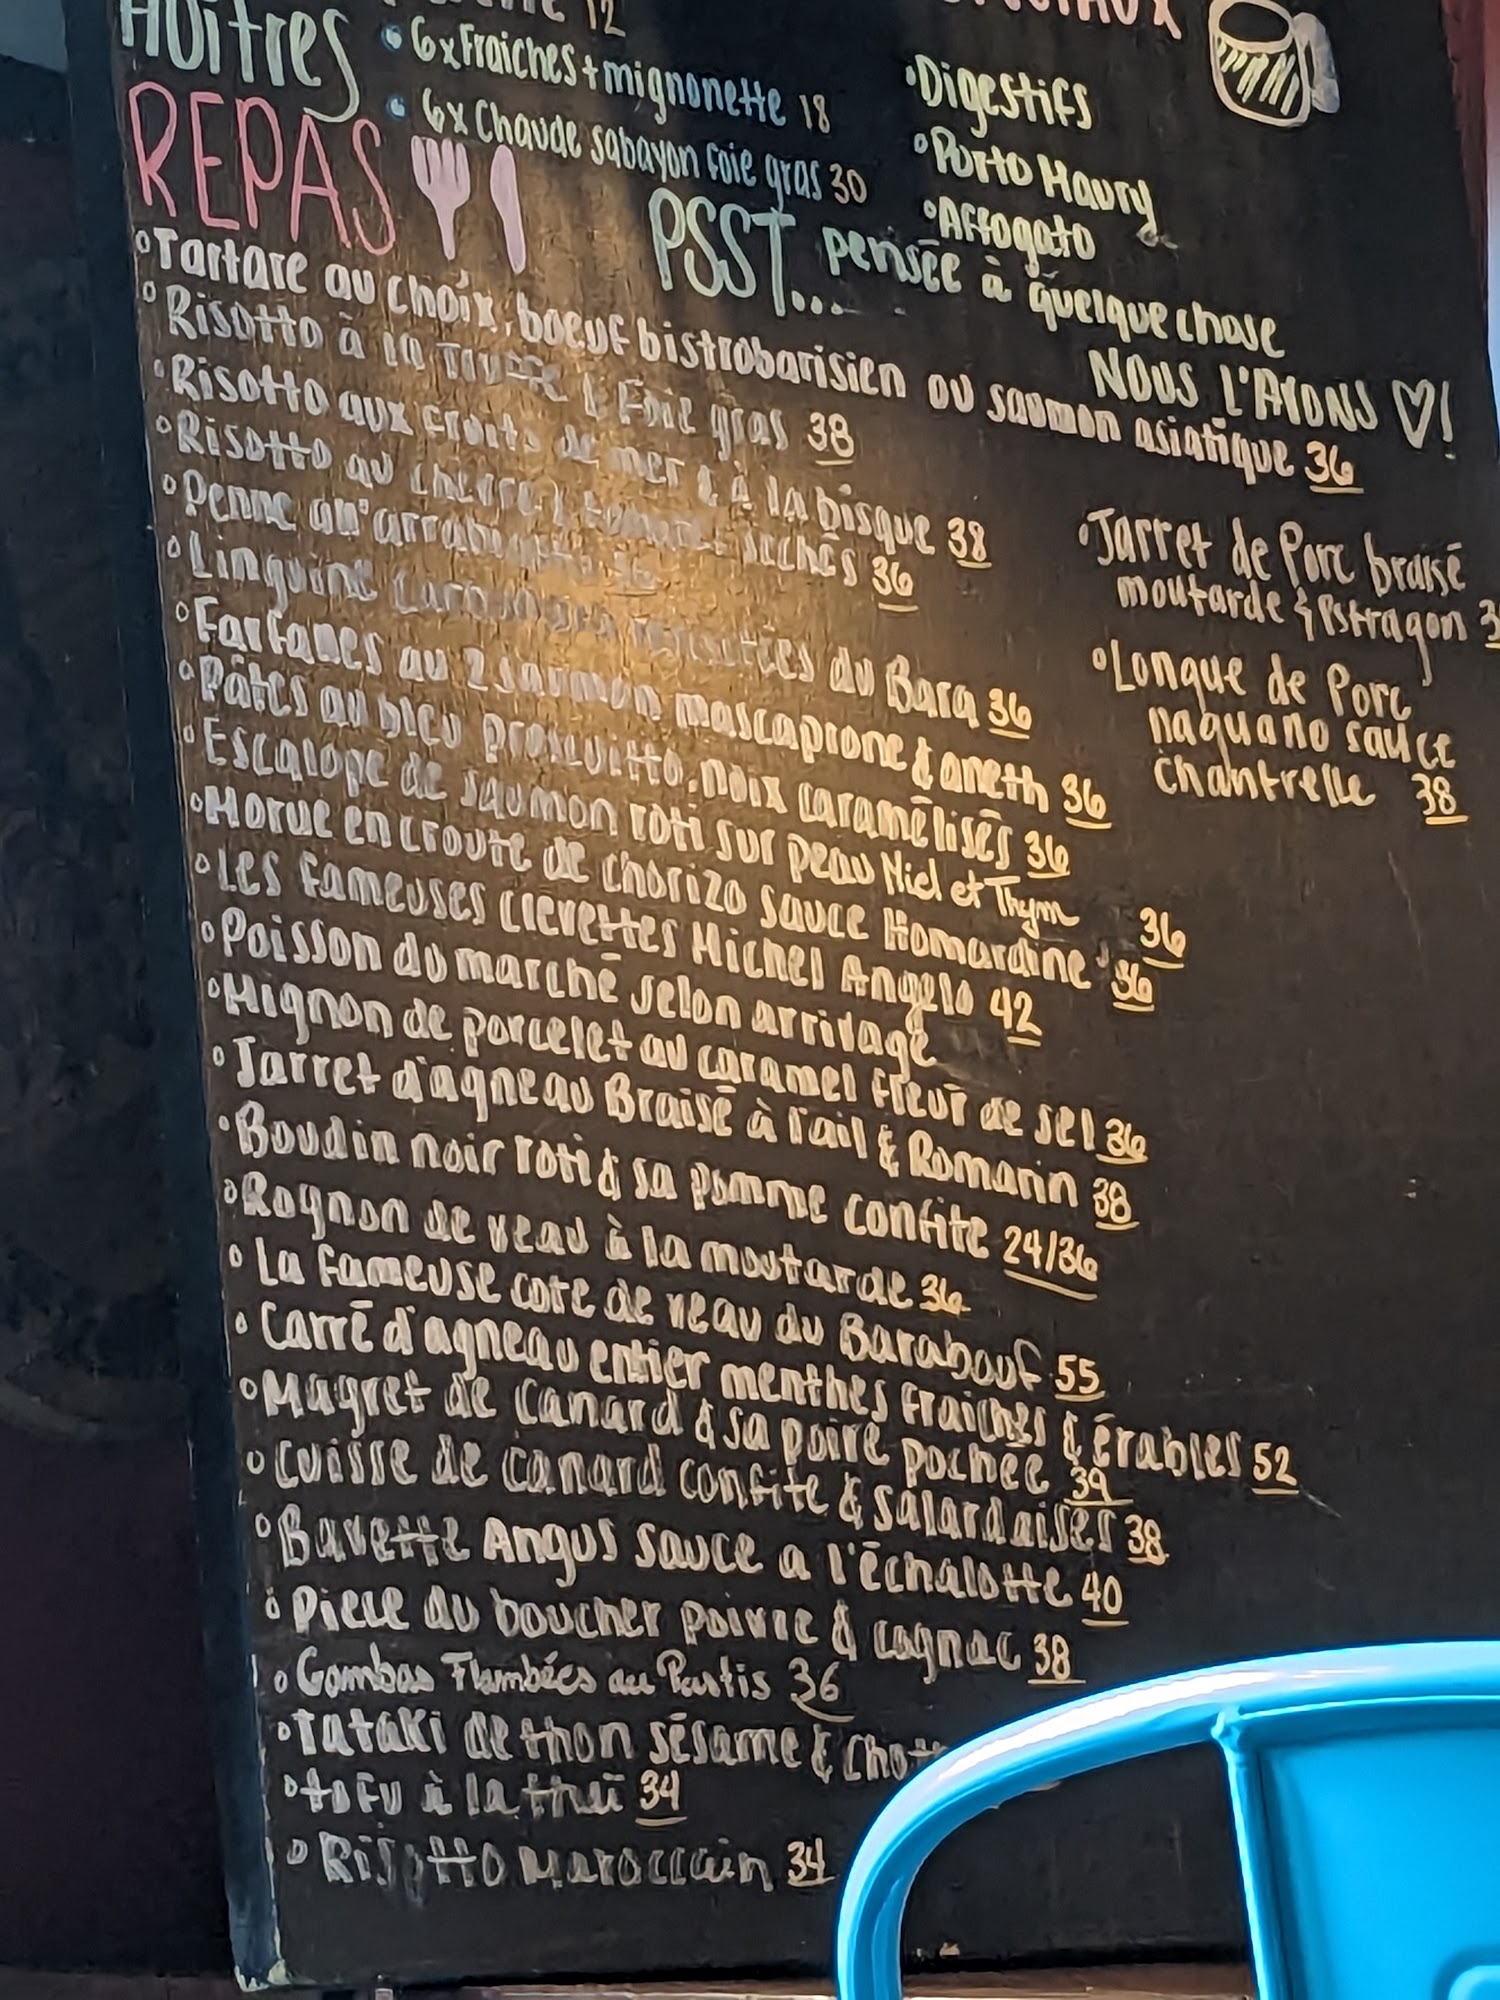 12
Huîtres
• 6x Fraiches + mignonette 18
• 6x Chaude sabayon foie gras 30
• Digestifs
• Porto Maury
• Affogato
REPAS
PSST... pensée à quelque chose
NOUS L'AVONS ♡!
• Tartare au choix, boeuf bistrobarisien ou saumon asiatique 36
• Risotto à la Truffe & Foie gras 38
• Risotto aux fruits de mer & à la bisque 38
• Risotto au chèvre & séchés 36
• Penne all'arrabiata 36
• Linguine Carbonara du Bara 36
• Farfalles au 2 saumon mascaprone & aneth 36
• Pâtes au bleu proscuitto, noix caramélisés 36
• Escalope de saumon roti sur peau Miel et Thym 36
• Morue en croute de chorizo sauce Homardine 36
• Les fameuses crevettes Michel Angelo 42
• Poisson du marché selon arrivage
• Mignon de porcelet au caramel fleur de sel 36
• Jarret d'agneau Braisé à l'ail & Romarin 38
• Boudin noir roti & sa pomme confite 24/36
• Rognon de veau à la moutarde 36
• La fameuse cote de veau du Barabouf 55
• Carré d'agneau entier menthes fraiches & érables 52
• Magret de canard & sa poire pochée 39
• Cuisse de canard confite & salardaises 38
• Bavette Angus sauce a l'échalotte 40
• Piece du boucher poivre & cognac 38
• Gambas Flambées au Pastis 36
• Tataki de thon sésame &
• tofu à la thaï 34
• Risotto Maroccain 34
• Jarret de Porc braisé
moutarde & Estragon
• Longue de Porc
naguano sauce
chantrelle 38